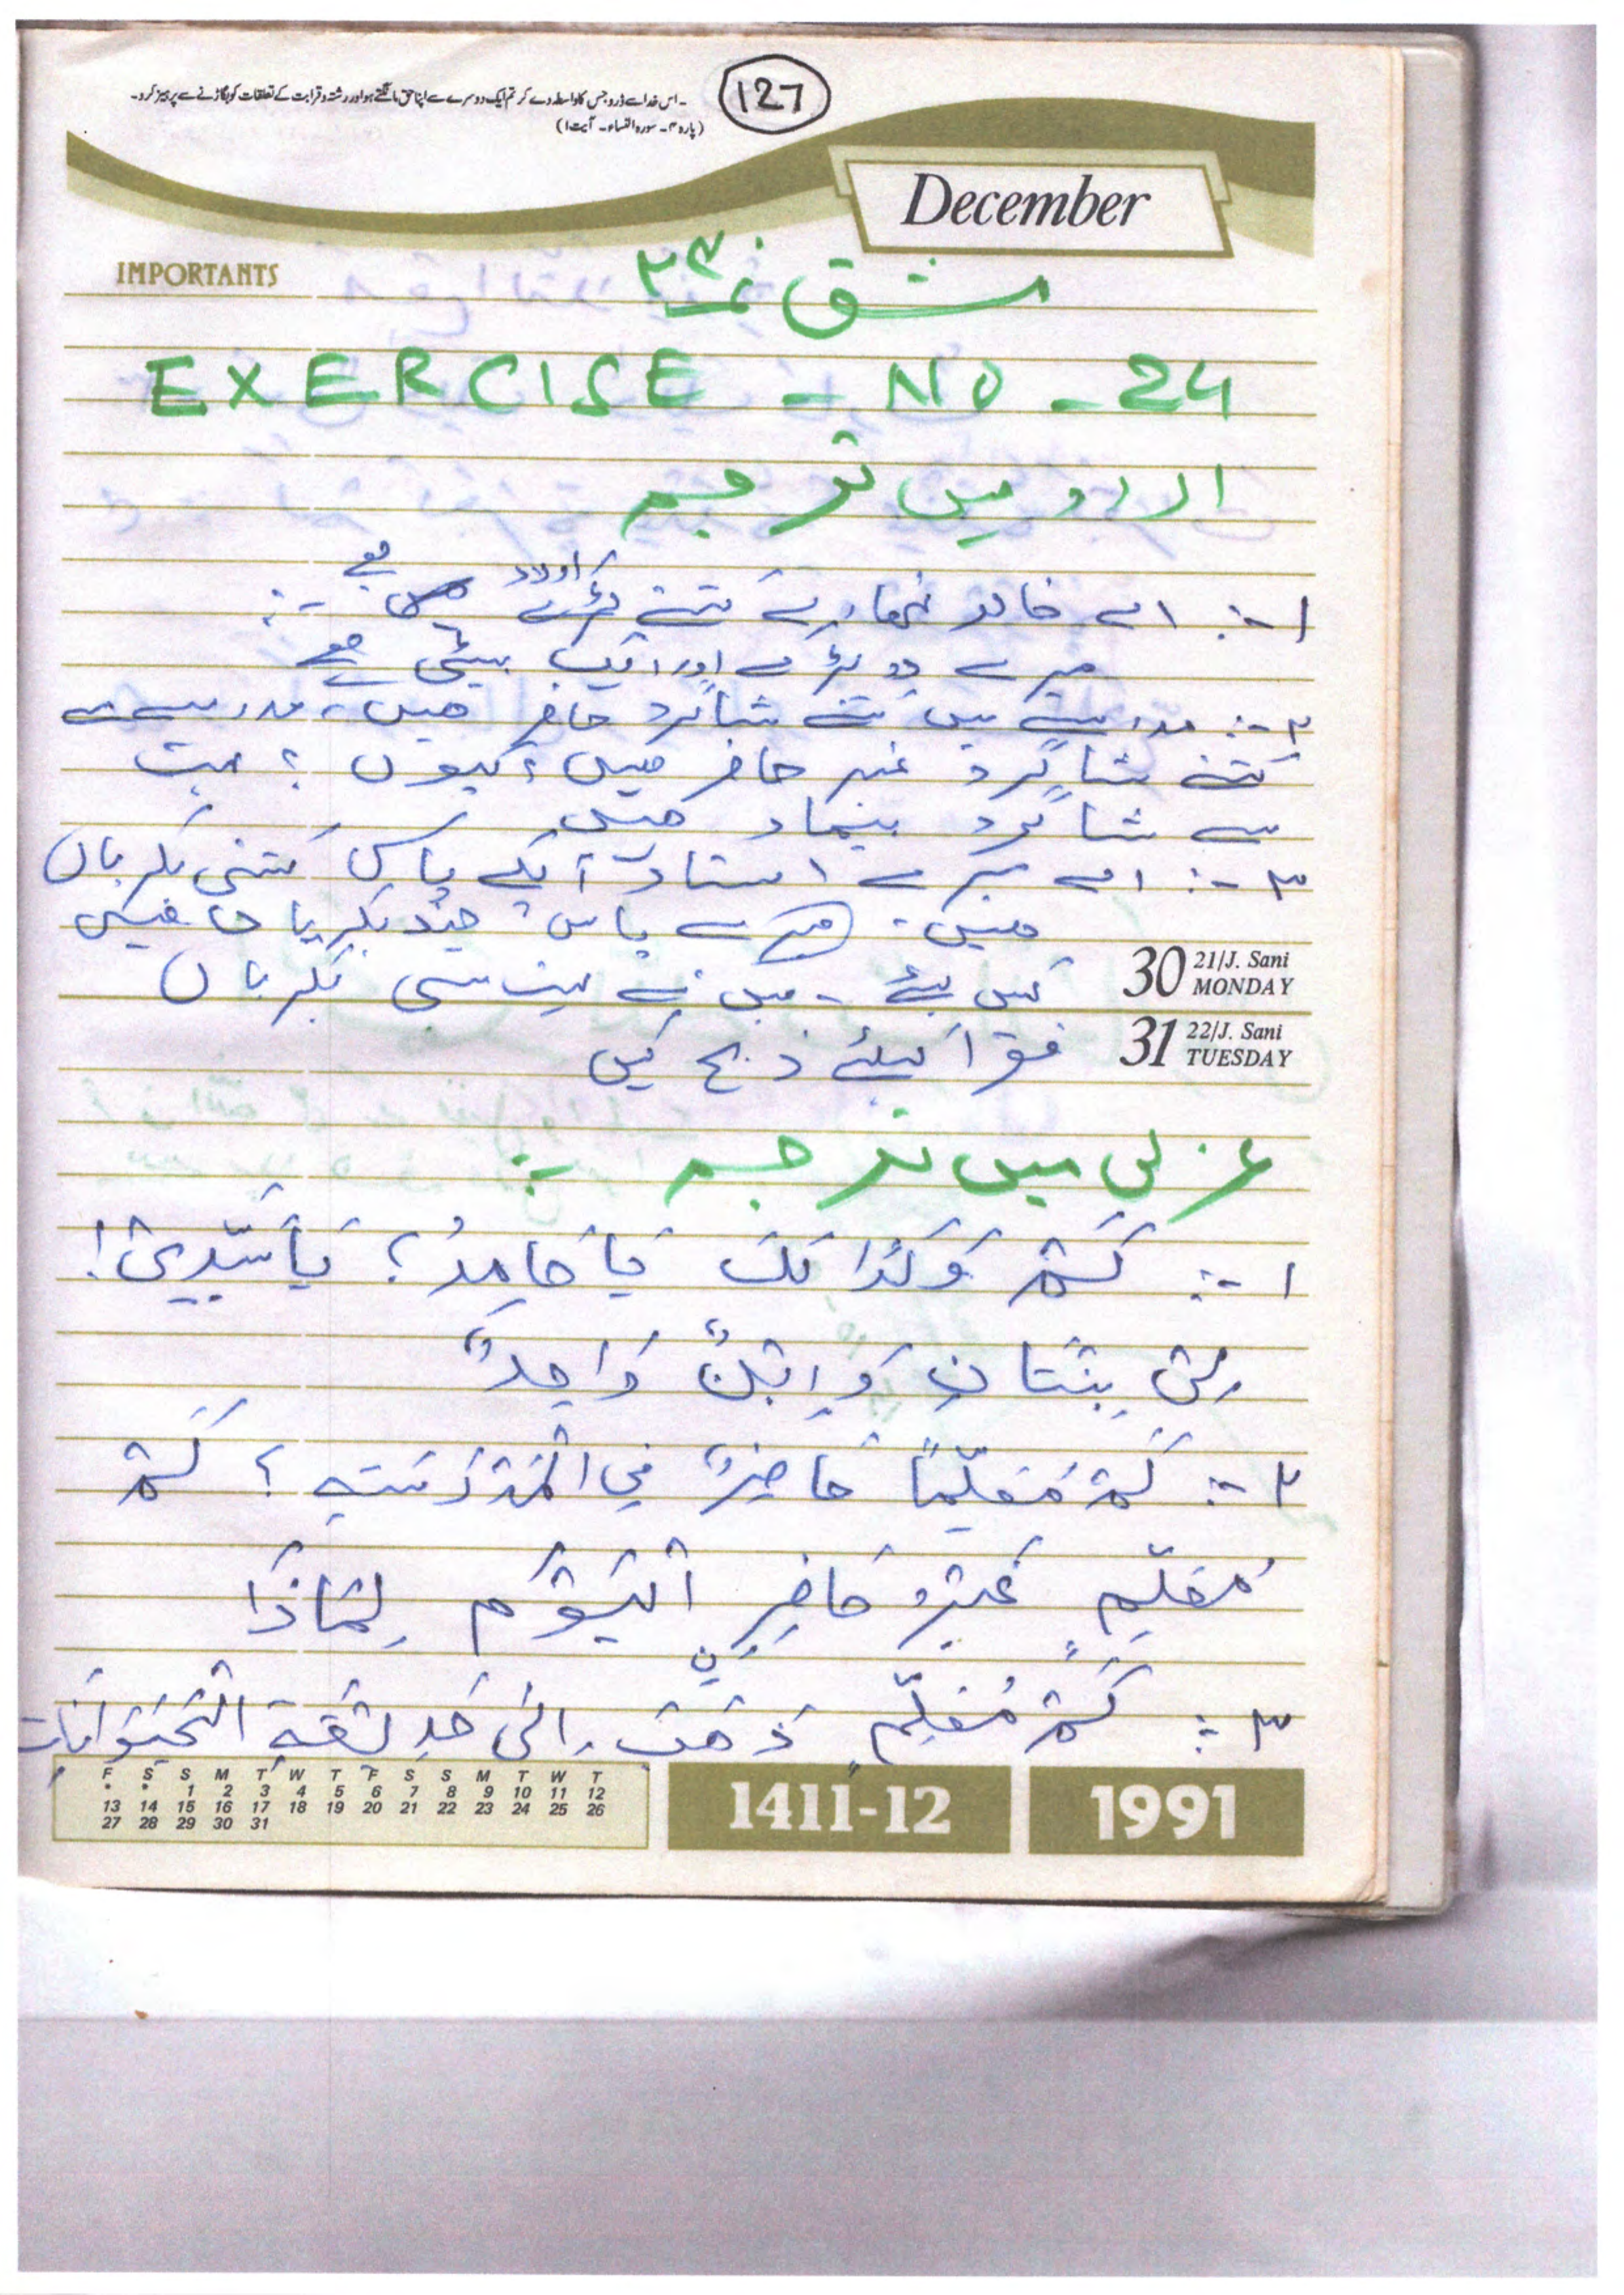 127
۔اس خدا سے ڈرو جس کا واسطہ دے کر تم ایک دوسرے سے اپنا حق مانگتے ہو اور رشتہ و قرابت کے تعلقات کو بگاڑنے سے پرہیز کرو۔
(پارہ ۴۔ سورہ النساء۔ آیت ۱)
December
IMPORTANTS
مشق نمبر ۲۴
EXERCISE - NO - 24
اردو میں ترجمہ
۱-: اے خالد تمھارے کتنے اولاد ہے :-
میرے دو لڑکے اور ایک بیٹی ہے
۲-: مدرسے میں کتنے شاگرد حاضر ہیں، مدرسے سے
کتنے شاگرد غیر حاضر ہیں؟ کیوں؟ بہت
سے شاگرد بیمار ہیں
۳-: اے میرے استاد آپکے پاس کتنی بکریاں
ہیں۔ میرے پاس چند بکریا
میں نے بہت سی بکریاں
30 21/J. Sani MONDAY
فقرا کیلئے ذبح کیں
31 22/J. Sani TUESDAY
عربی میں ترجمہ :-
۱-: كَمْ وَلَدًا لَكَ يَا حَامِدُ؟ يَا سَيِّدِيْ!
لِيْ بِنْتَانِ وَ اِبْنٌ وَاحِدٌ
۲-: كَمْ مُعَلِّمًا حَاضِرٌ فِي الْمَدْرَسَتِهِ؟ كَمْ
مُعَلِّمٍ غَيْرُ حَاضِرٍ الْيَوْمَ لِمَاذَا
۳-: كَمْ مُعَلِّمٍ ذَهَبَ اِلَى حَدِيْقَةِ الْحَيْوَانَات
F S S M T W T F S S M T W T
* * 1 2 3 4 5 6 7 8 9 10 11 12
13 14 15 16 17 18 19 20 21 22 23 24 25 26
27 28 29 30 31
1411-12
1991